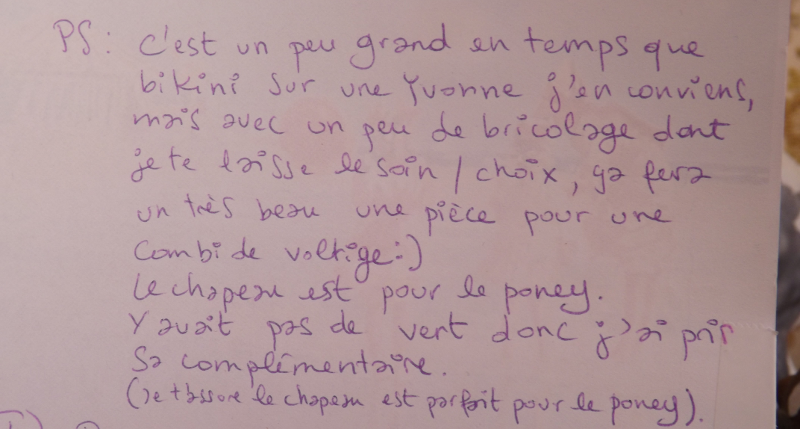 PS : c'est un peu grand en temps que
bikini sur une Yvonne j'en conviens,
mais avec un peu de bricolage dont
je te laisse le soin / choix, ça fera
un très beau une pièce pour une
combi de voltige :)
Le chapeau est pour le poney.
Y avait pas de vert donc j'ai pris
sa complémentaire.
(Je t'assure le chapeau est parfait pour le poney).